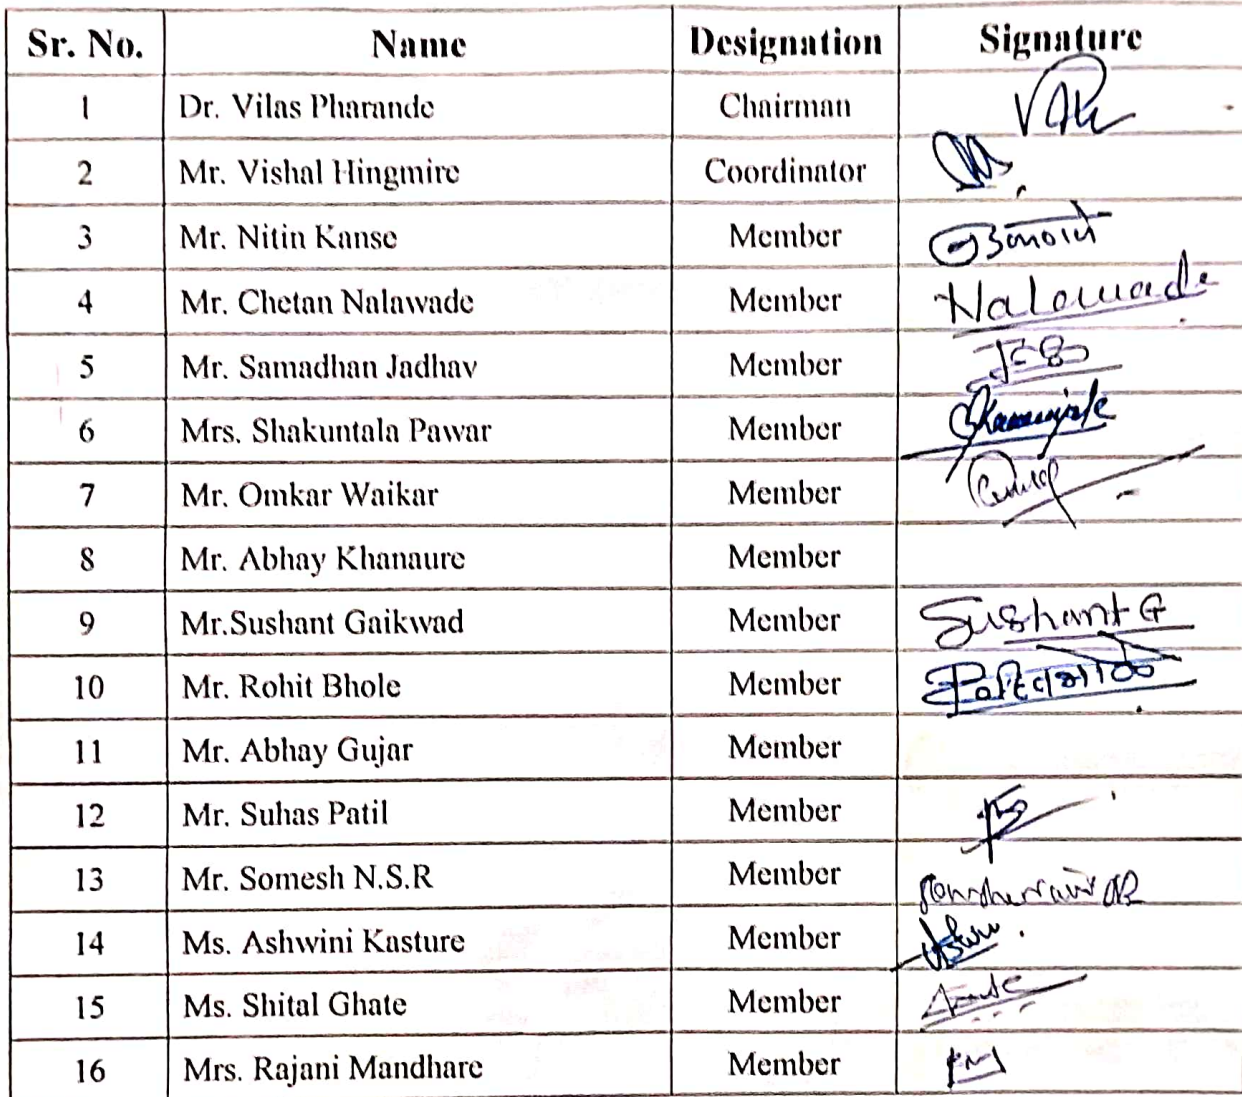 Sr. No. Name Designation Signature
1 Dr. Vilas Pharande Chairman
2 Mr. Vishal Hingmire Coordinator
3 Mr. Nitin Kanse Member
4 Mr. Chetan Nalawade Member Nalawade
5 Mr. Samadhan Jadhav Member
6 Mrs. Shakuntala Pawar Member
7 Mr. Omkar Waikar Member
8 Mr. Abhay Khanaure Member
9 Mr.Sushant Gaikwad Member Sushant G
10 Mr. Rohit Bhole Member
11 Mr. Abhay Gujar Member
12 Mr. Suhas Patil Member
13 Mr. Somesh N.S.R Member
14 Ms. Ashwini Kasture Member
15 Ms. Shital Ghate Member
16 Mrs. Rajani Mandhare Member